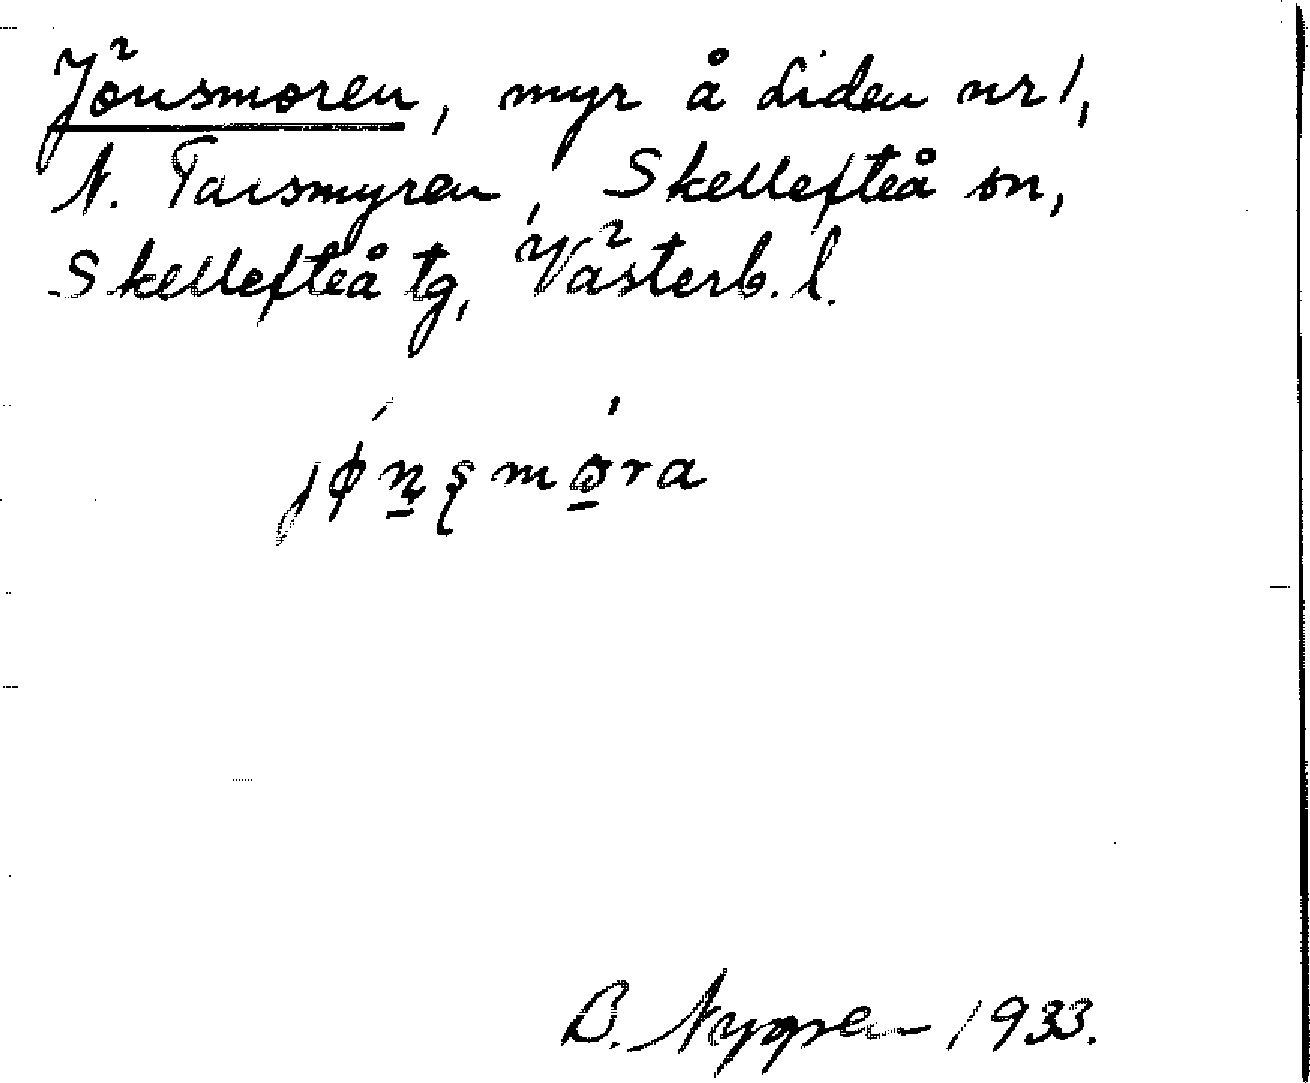 Jönsmoren, myr å Liden nr 1,
N. Tarsmyren, Skellefteå sn,
Skellefteå tg, Västerb. l.
B. Nygren 1933.